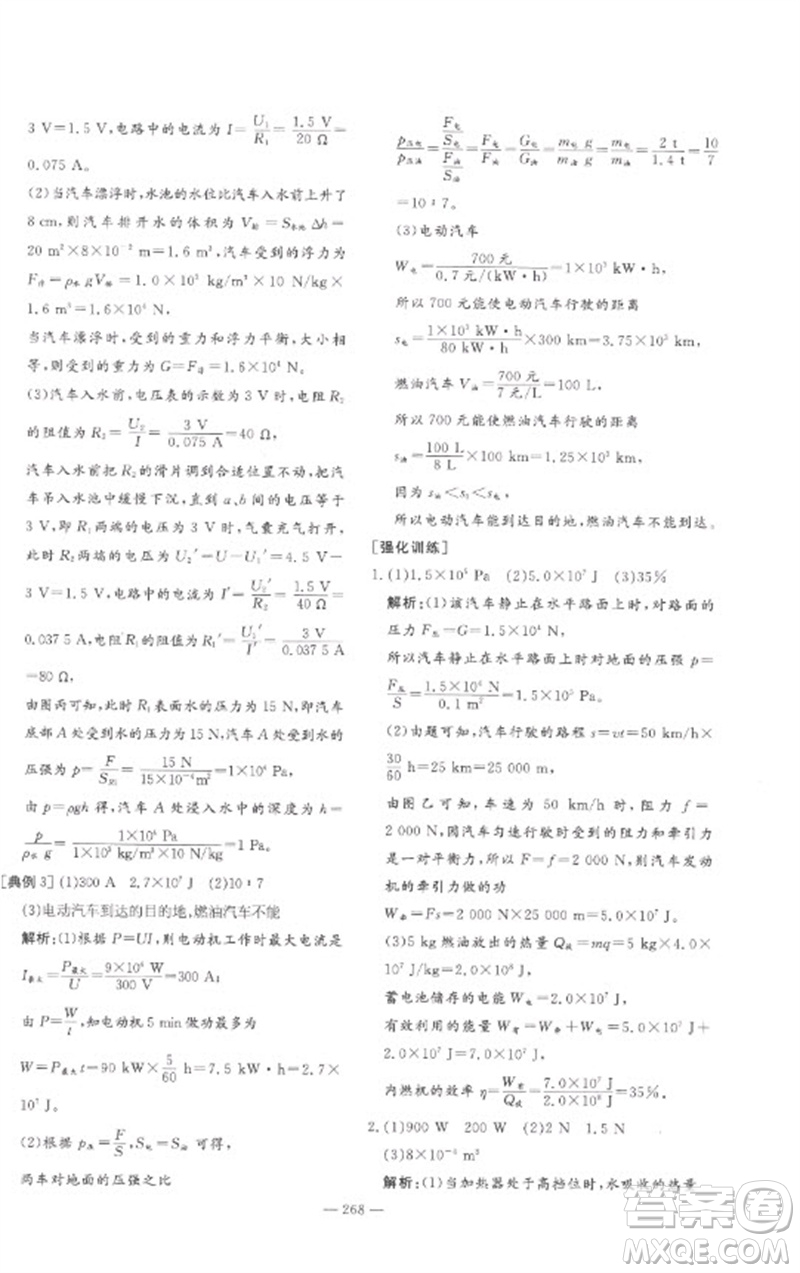 3 V=1.5 V,电路中的电流为 I=U₁/R₁=1.5 V/20 Ω=
0.075 A。
(2)当汽车漂浮时,水池的水位比汽车入水前上升了
8 cm,则汽车排开水的体积为 V排=S水池Δh=
20 m²×8×10⁻² m=1.6 m³,汽车受到的浮力为
F浮=ρ水gV排=1.0×10³ kg/m³×10 N/kg×
1.6 m³=1.6×10⁴ N,
当汽车漂浮时,受到的重力和浮力平衡,大小相
等,则受到的重力为 G=F浮=1.6×10⁴ N。
(3)汽车入水前,电压表的示数为 3 V 时,电阻 R₂
的阻值为 R₂=U₂/I=3 V/0.075 A=40 Ω,
汽车入水前把 R₂ 的滑片调到合适位置不动,把汽
车吊入水池中缓慢下沉,直到 a、b 间的电压等于
3 V,即 R₁ 两端的电压为 3 V 时,气囊充气打开,
此时 R₂ 两端的电压为 U₂′=U-U₁′=4.5 V-
3 V=1.5 V,电路中的电流为 I′=U₂′/R₂=1.5 V/40 Ω=
0.037 5 A,电阻 R₁ 的阻值为 R₁′=U₁′/I′=3 V/0.037 5 A
=80 Ω,
由图丙可知,此时 R₁ 表面水的压力为 15 N,即汽车
底部 A 处受到水的压力为 15 N,则汽车 A 处受到水
的压强为 p=F/S=15 N/15×10⁻⁴m²=1×10⁴ Pa,
由 p=ρgh 得,汽车 A 处浸入水中的深度为 h=
p/ρ水g=1×10⁴ Pa/1×10³ kg/m³×10 N/kg=1 m。
[典例 3] (1)300 A 2.7×10⁷ J (2)10∶7
(3)电动汽车到达的目的地,燃油汽车不能
解析:(1)根据 P=UI,则电动机工作时最大电流是
I最大=P最大/U=9×10⁴ W/300 V=300 A;
由 P=W/t,知电动机 5 min 做功最多为
W=P最大t=90 kW×5/60 h=7.5 kW·h=2.7×
10⁷ J。
(2)根据 p压=F/S,S电=S油 可得,
两车对地面的压强之比
p压电/p压油=(F电/S电)/(F油/S油)=F电/F油=G电/G油=m电g/m油g=2 t/1.4 t=10/7
=10∶7。
(3)电动汽车
W电=700 元/0.7 元/(kW·h)=1×10³ kW·h
所以 700 元能使电动汽车行驶的距离
s电=1×10³ kW·h/80 kW·h×300 km=3.75×10³ km,
燃油汽车 V油=700 元/7 元/L=100 L,
所以 700 元能使燃油汽车行驶的距离
s油=100 L/8 L×100 km=1.25×10³ km,
因为 s油<s<s电,
所以电动汽车能到达目的地,燃油汽车不能到达。
[强化训练]
1. (1)1.5×10⁵ Pa (2)5.0×10⁷ J (3)35%
解析:(1)该汽车静止在水平路面上时,对路面的
压力 F压=G=1.5×10⁴ N,
所以汽车静止在水平路面时对地面的压强 p=
F压/S=1.5×10⁴ N/0.1 m²=1.5×10⁵ Pa。
(2)由题可知,汽车行驶的路程 s=vt=50 km/h×
30/60 h=25 km=25 000 m,
由图乙可知,车速为 50 km/h 时,阻力 f=
2 000 N,因汽车匀速行驶时受到的阻力和牵引力
为一对平衡力,所以 F=f=2 000 N,则汽车发动
机牵引力做的功
W牵=Fs=2 000 N×25 000 m=5.0×10⁷ J。
(3)5 kg 燃油放出的热量 Q放=mq=5 kg×4.0×
10⁷ J/kg=2.0×10⁸ J,
蓄电池储存的电能 W电=2.0×10⁷ J,
有效利用的能量 W有=W牵+W电=5.0×10⁷ J+
2.0×10⁷ J=7.0×10⁷ J,
内燃机的效率 η=W有/Q放=7.0×10⁷ J/2.0×10⁸ J=35%。
2. (1)900 W 200 W (2)2 N 1.5 N
(3)8×10⁻⁴ m³
解析:(1)当加热器处于高挡位时,水吸收的热量
— 268 —
答案圈
MXQE.COM